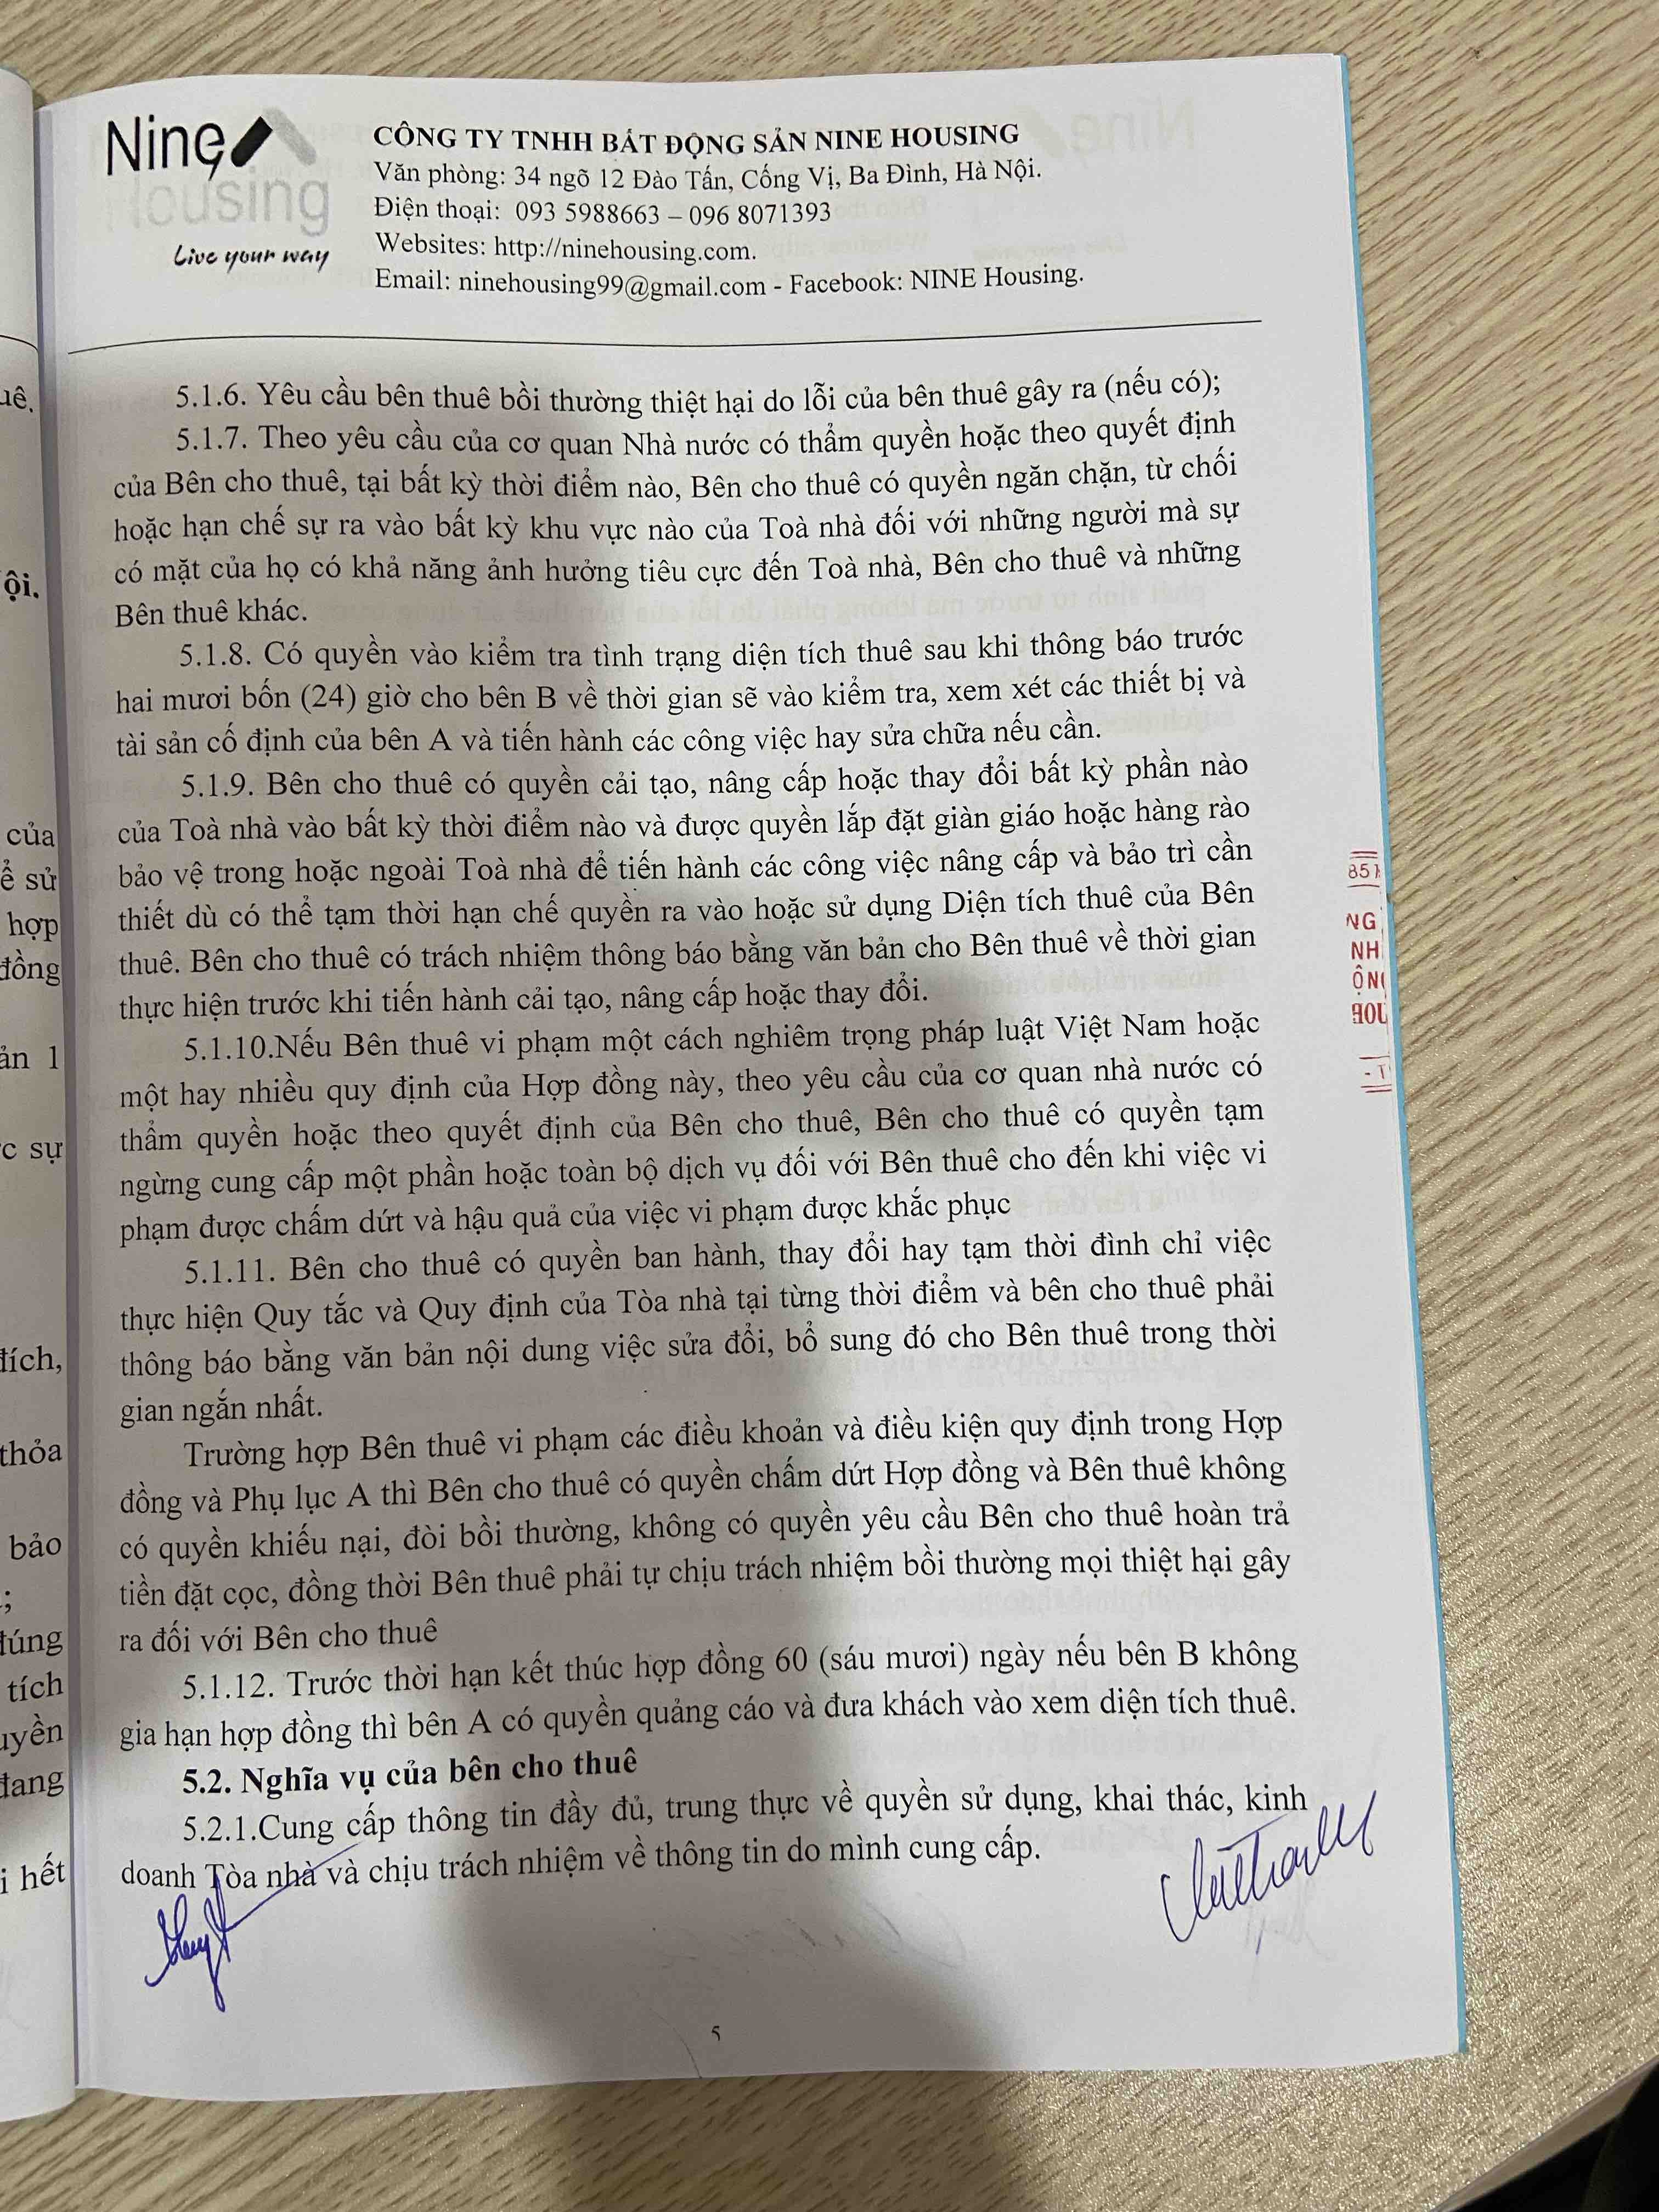 Nine
Housing
Live your way
CÔNG TY TNHH BẤT ĐỘNG SẢN NINE HOUSING
Văn phòng: 34 ngõ 12 Đào Tấn, Cống Vị, Ba Đình, Hà Nội.
Điện thoại: 093 5988663 – 096 8071393
Websites: http://ninehousing.com.
Email: ninehousing99@gmail.com - Facebook: NINE Housing.
5.1.6. Yêu cầu bên thuê bồi thường thiệt hại do lỗi của bên thuê gây ra (nếu có);
5.1.7. Theo yêu cầu của cơ quan Nhà nước có thẩm quyền hoặc theo quyết định
của Bên cho thuê, tại bất kỳ thời điểm nào, Bên cho thuê có quyền ngăn chặn, từ chối
hoặc hạn chế sự ra vào bất kỳ khu vực nào của Toà nhà đối với những người mà sự
có mặt của họ có khả năng ảnh hưởng tiêu cực đến Toà nhà, Bên cho thuê và những
Bên thuê khác.
5.1.8. Có quyền vào kiểm tra tình trạng diện tích thuê sau khi thông báo trước
hai mươi bốn (24) giờ cho bên B về thời gian sẽ vào kiểm tra, xem xét các thiết bị và
tài sản cố định của bên A và tiến hành các công việc hay sửa chữa nếu cần.
5.1.9. Bên cho thuê có quyền cải tạo, nâng cấp hoặc thay đổi bất kỳ phần nào
của Toà nhà vào bất kỳ thời điểm nào và được quyền lắp đặt giàn giáo hoặc hàng rào
bảo vệ trong hoặc ngoài Toà nhà để tiến hành các công việc nâng cấp và bảo trì cần
thiết dù có thể tạm thời hạn chế quyền ra vào hoặc sử dụng Diện tích thuê của Bên
thuê. Bên cho thuê có trách nhiệm thông báo bằng văn bản cho Bên thuê về thời gian
thực hiện trước khi tiến hành cải tạo, nâng cấp hoặc thay đổi.
5.1.10.Nếu Bên thuê vi phạm một cách nghiêm trọng pháp luật Việt Nam hoặc
một hay nhiều quy định của Hợp đồng này, theo yêu cầu của cơ quan nhà nước có
thẩm quyền hoặc theo quyết định của Bên cho thuê, Bên cho thuê có quyền tạm
ngừng cung cấp một phần hoặc toàn bộ dịch vụ đối với Bên thuê cho đến khi việc vi
phạm được chấm dứt và hậu quả của việc vi phạm được khắc phục
5.1.11. Bên cho thuê có quyền ban hành, thay đổi hay tạm thời đình chỉ việc
thực hiện Quy tắc và Quy định của Tòa nhà tại từng thời điểm và bên cho thuê phải
thông báo bằng văn bản nội dung việc sửa đổi, bổ sung đó cho Bên thuê trong thời
gian ngắn nhất.
Trường hợp Bên thuê vi phạm các điều khoản và điều kiện quy định trong Hợp
đồng và Phụ lục A thì Bên cho thuê có quyền chấm dứt Hợp đồng và Bên thuê không
có quyền khiếu nại, đòi bồi thường, không có quyền yêu cầu Bên cho thuê hoàn trả
tiền đặt cọc, đồng thời Bên thuê phải tự chịu trách nhiệm bồi thường mọi thiệt hại gây
ra đối với Bên cho thuê
5.1.12. Trước thời hạn kết thúc hợp đồng 60 (sáu mươi) ngày nếu bên B không
gia hạn hợp đồng thì bên A có quyền quảng cáo và đưa khách vào xem diện tích thuê.
5.2. Nghĩa vụ của bên cho thuê
5.2.1.Cung cấp thông tin đầy đủ, trung thực về quyền sử dụng, khai thác, kinh
doanh Tòa nhà và chịu trách nhiệm về thông tin do mình cung cấp.
5